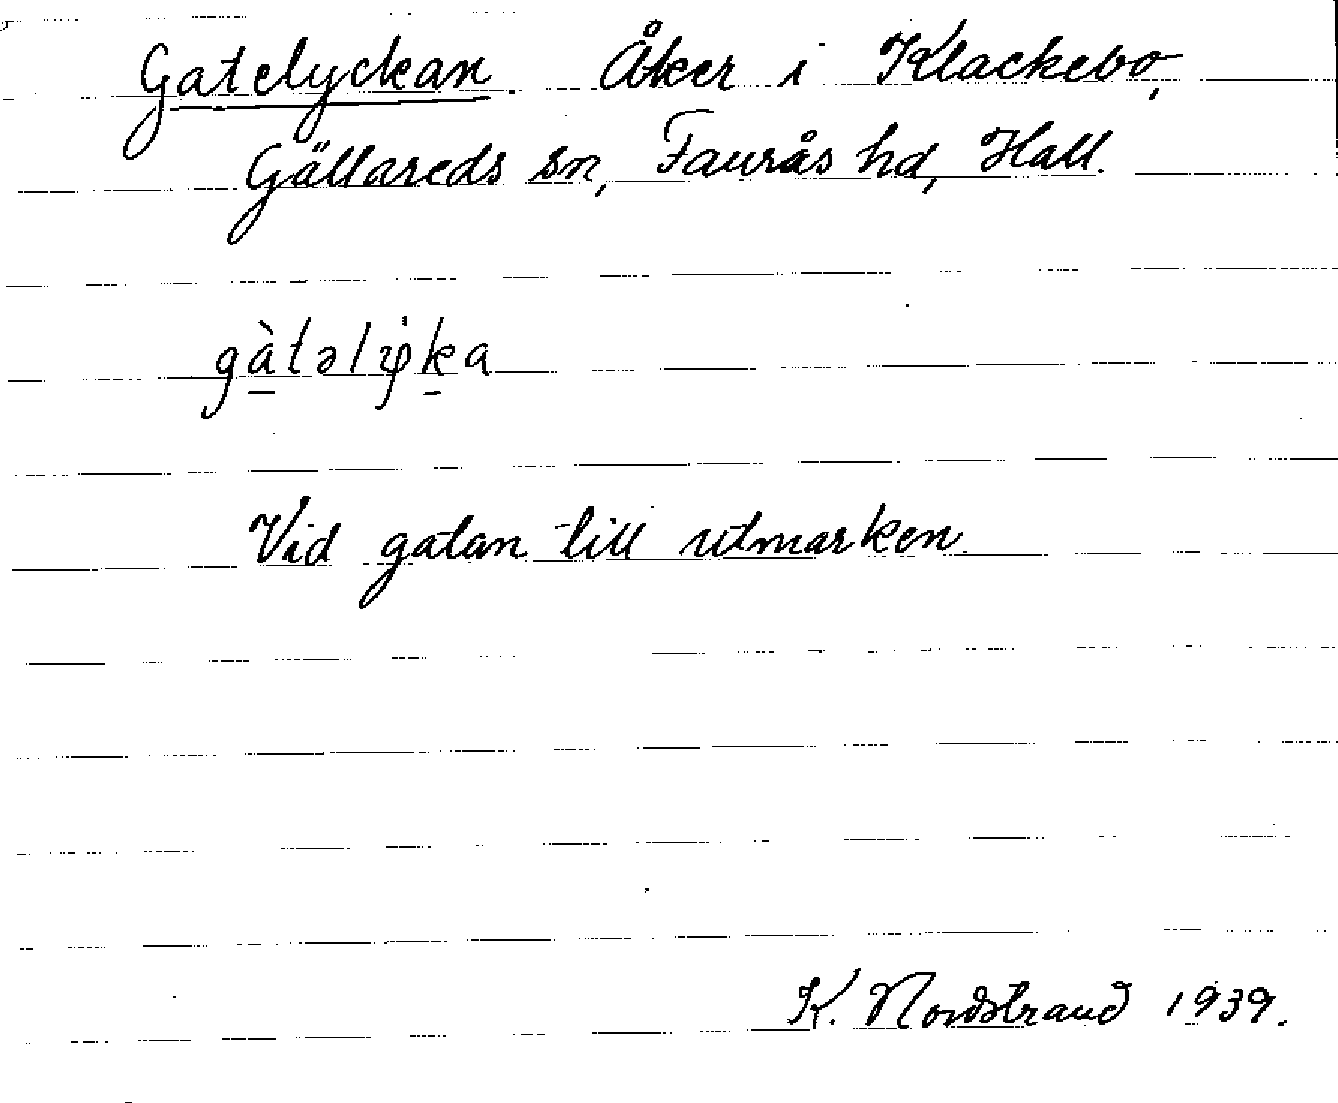 Gatelyckan. Åker i Klackebo,
Gällareds sn, Faurås hd, Hall.
gàtəlyka
Vid gatan till utmarken
K. Nordstrand 1939.